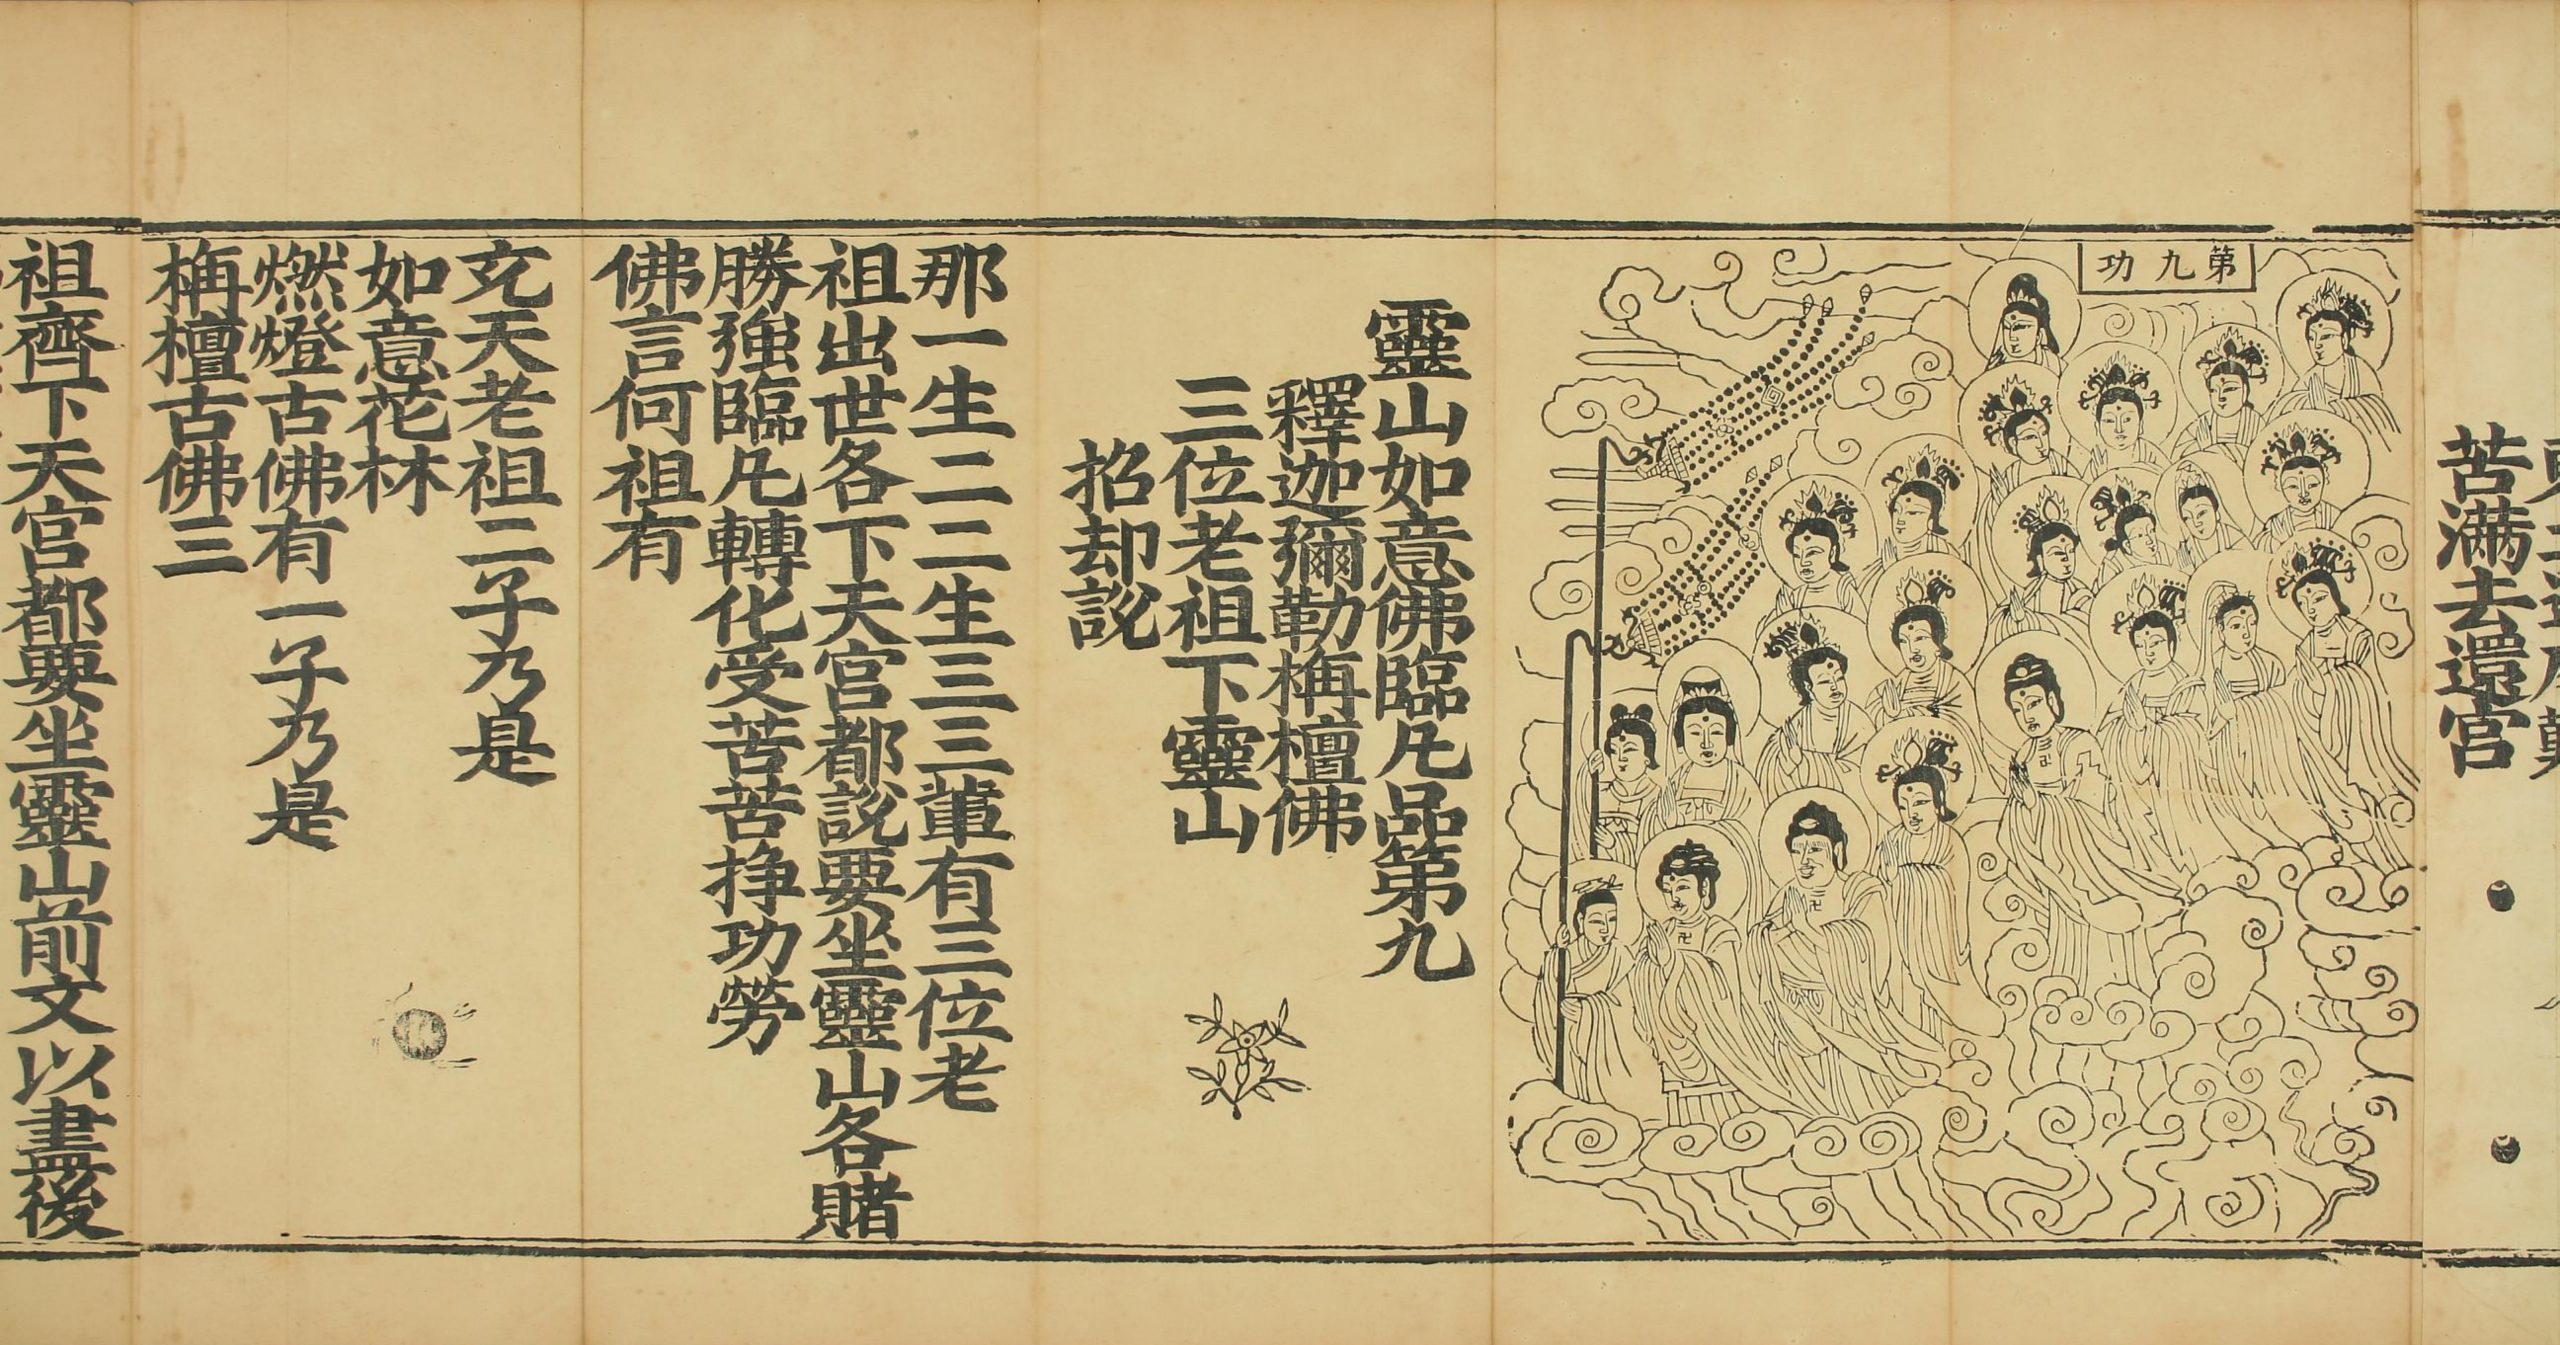 苦滿去還宮
第九功
靈山如意佛臨凢品第九
釋迦彌勒栴檀佛
三位老祖下靈山
招却説
那一生二二生三三軰有三位老
祖出世各下天宮都説要坐靈山各賭
勝強臨凢轉化受苦苦挣功勞
佛言何祖有
玄天老祖二子乃是
如意花林
燃燈古佛有一子乃是
栴檀古佛三
祖齊下天宮都要坐靈山前文以盡後